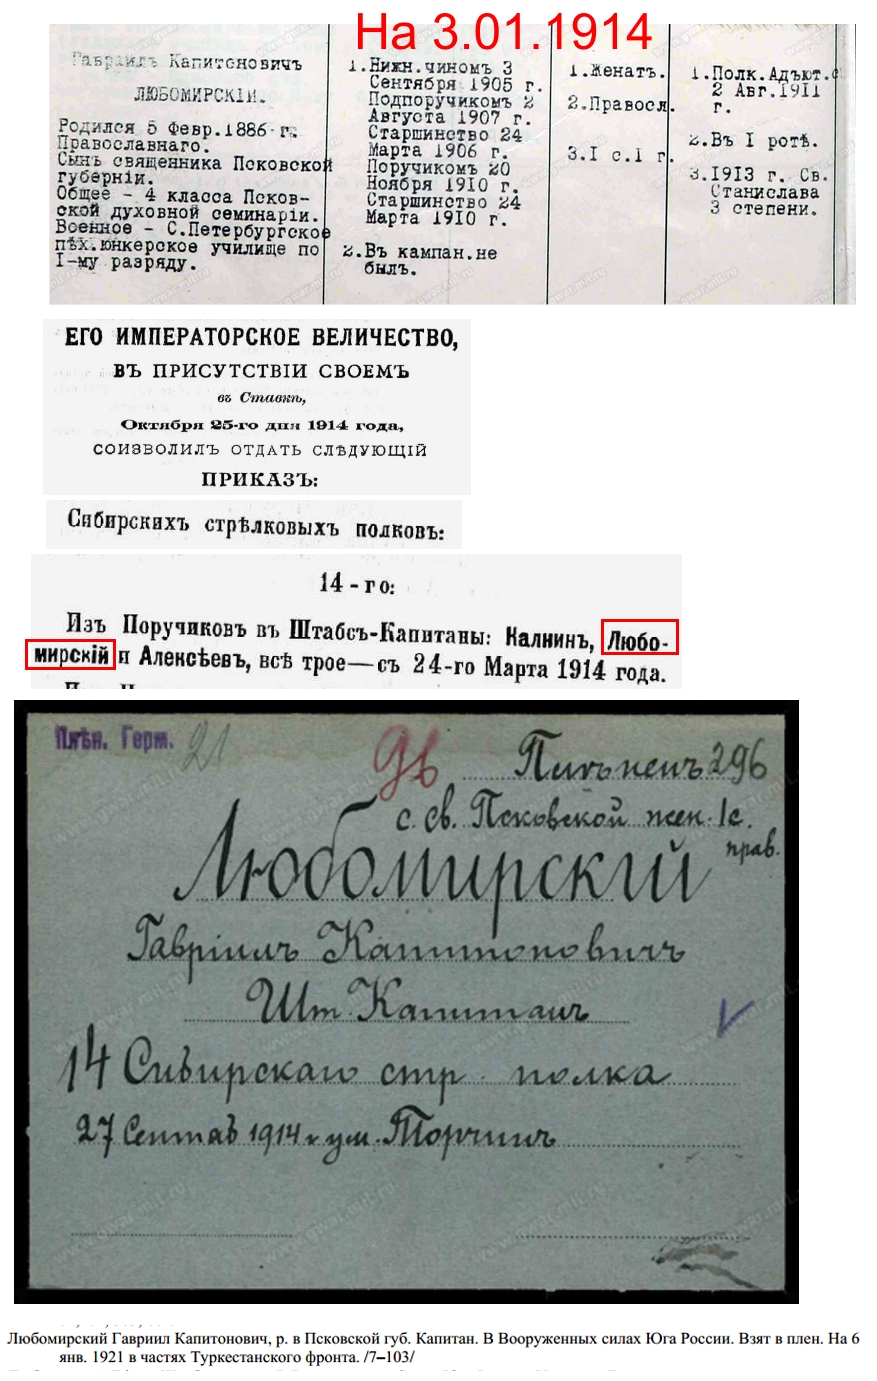 На 3.01.1914
Гавріилъ Капитоновичъ
ЛЮБОМИРСКІЙ.
Родился 5 Февр.1886 г.
Православнаго.
Сынъ священника Псковской
губерніи.
Общее - 4 класса Псков-
ской духовной семинаріи.
Военное - С.Петербургское
пѣх.юнкерское училище по
I-му разряду.
1.Нижн.чиномъ 3
Сентября 1905 г.
Подпоручикомъ 2
Августа 1907 г.
Старшинство 24
Марта 1906 г.
Поручикомъ 20
Ноября 1910 г.
Старшинство 24
Марта 1910 г.
2.Въ кампан.не
былъ.
1.Женатъ.
2.Правосл.
3.I с.1 г.
1.Полк.Адъют.с
2 Авг.1911
г.
2.Въ I ротѣ.
3.1913 г. Св.
Станислава
3 степени.
ЕГО ИМПЕРАТОРСКОЕ ВЕЛИЧЕСТВО,
ВЪ ПРИСУТСТВІИ СВОЕМЪ
въ Ставкѣ,
Октября 25-го дня 1914 года,
СОИЗВОЛИЛЪ ОТДАТЬ СЛѢДУЮЩІЙ
ПРИКАЗЪ:
Сибирскихъ стрѣлковыхъ полковъ:
14-го:
Изъ Поручиковъ въ Штабсъ-Капитаны: Калнинъ, Любо-
мирскій и Алексѣевъ, всѣ трое—съ 24-го Марта 1914 года.
Плѣн. Герм. 21
96
296
с. св. Псковской жен. 1с.
прав.
Любомирскій
Гавріилъ Капитоновичъ
Шт. Капитанъ
14 Сибирскаго стр. полка
27 Сентяб 1914 г у м. Торчинъ
Любомирский Гавриил Капитонович, р. в Псковской губ. Капитан. В Вооруженных силах Юга России. Взят в плен. На 6
янв. 1921 в частях Туркестанского фронта. /7–103/